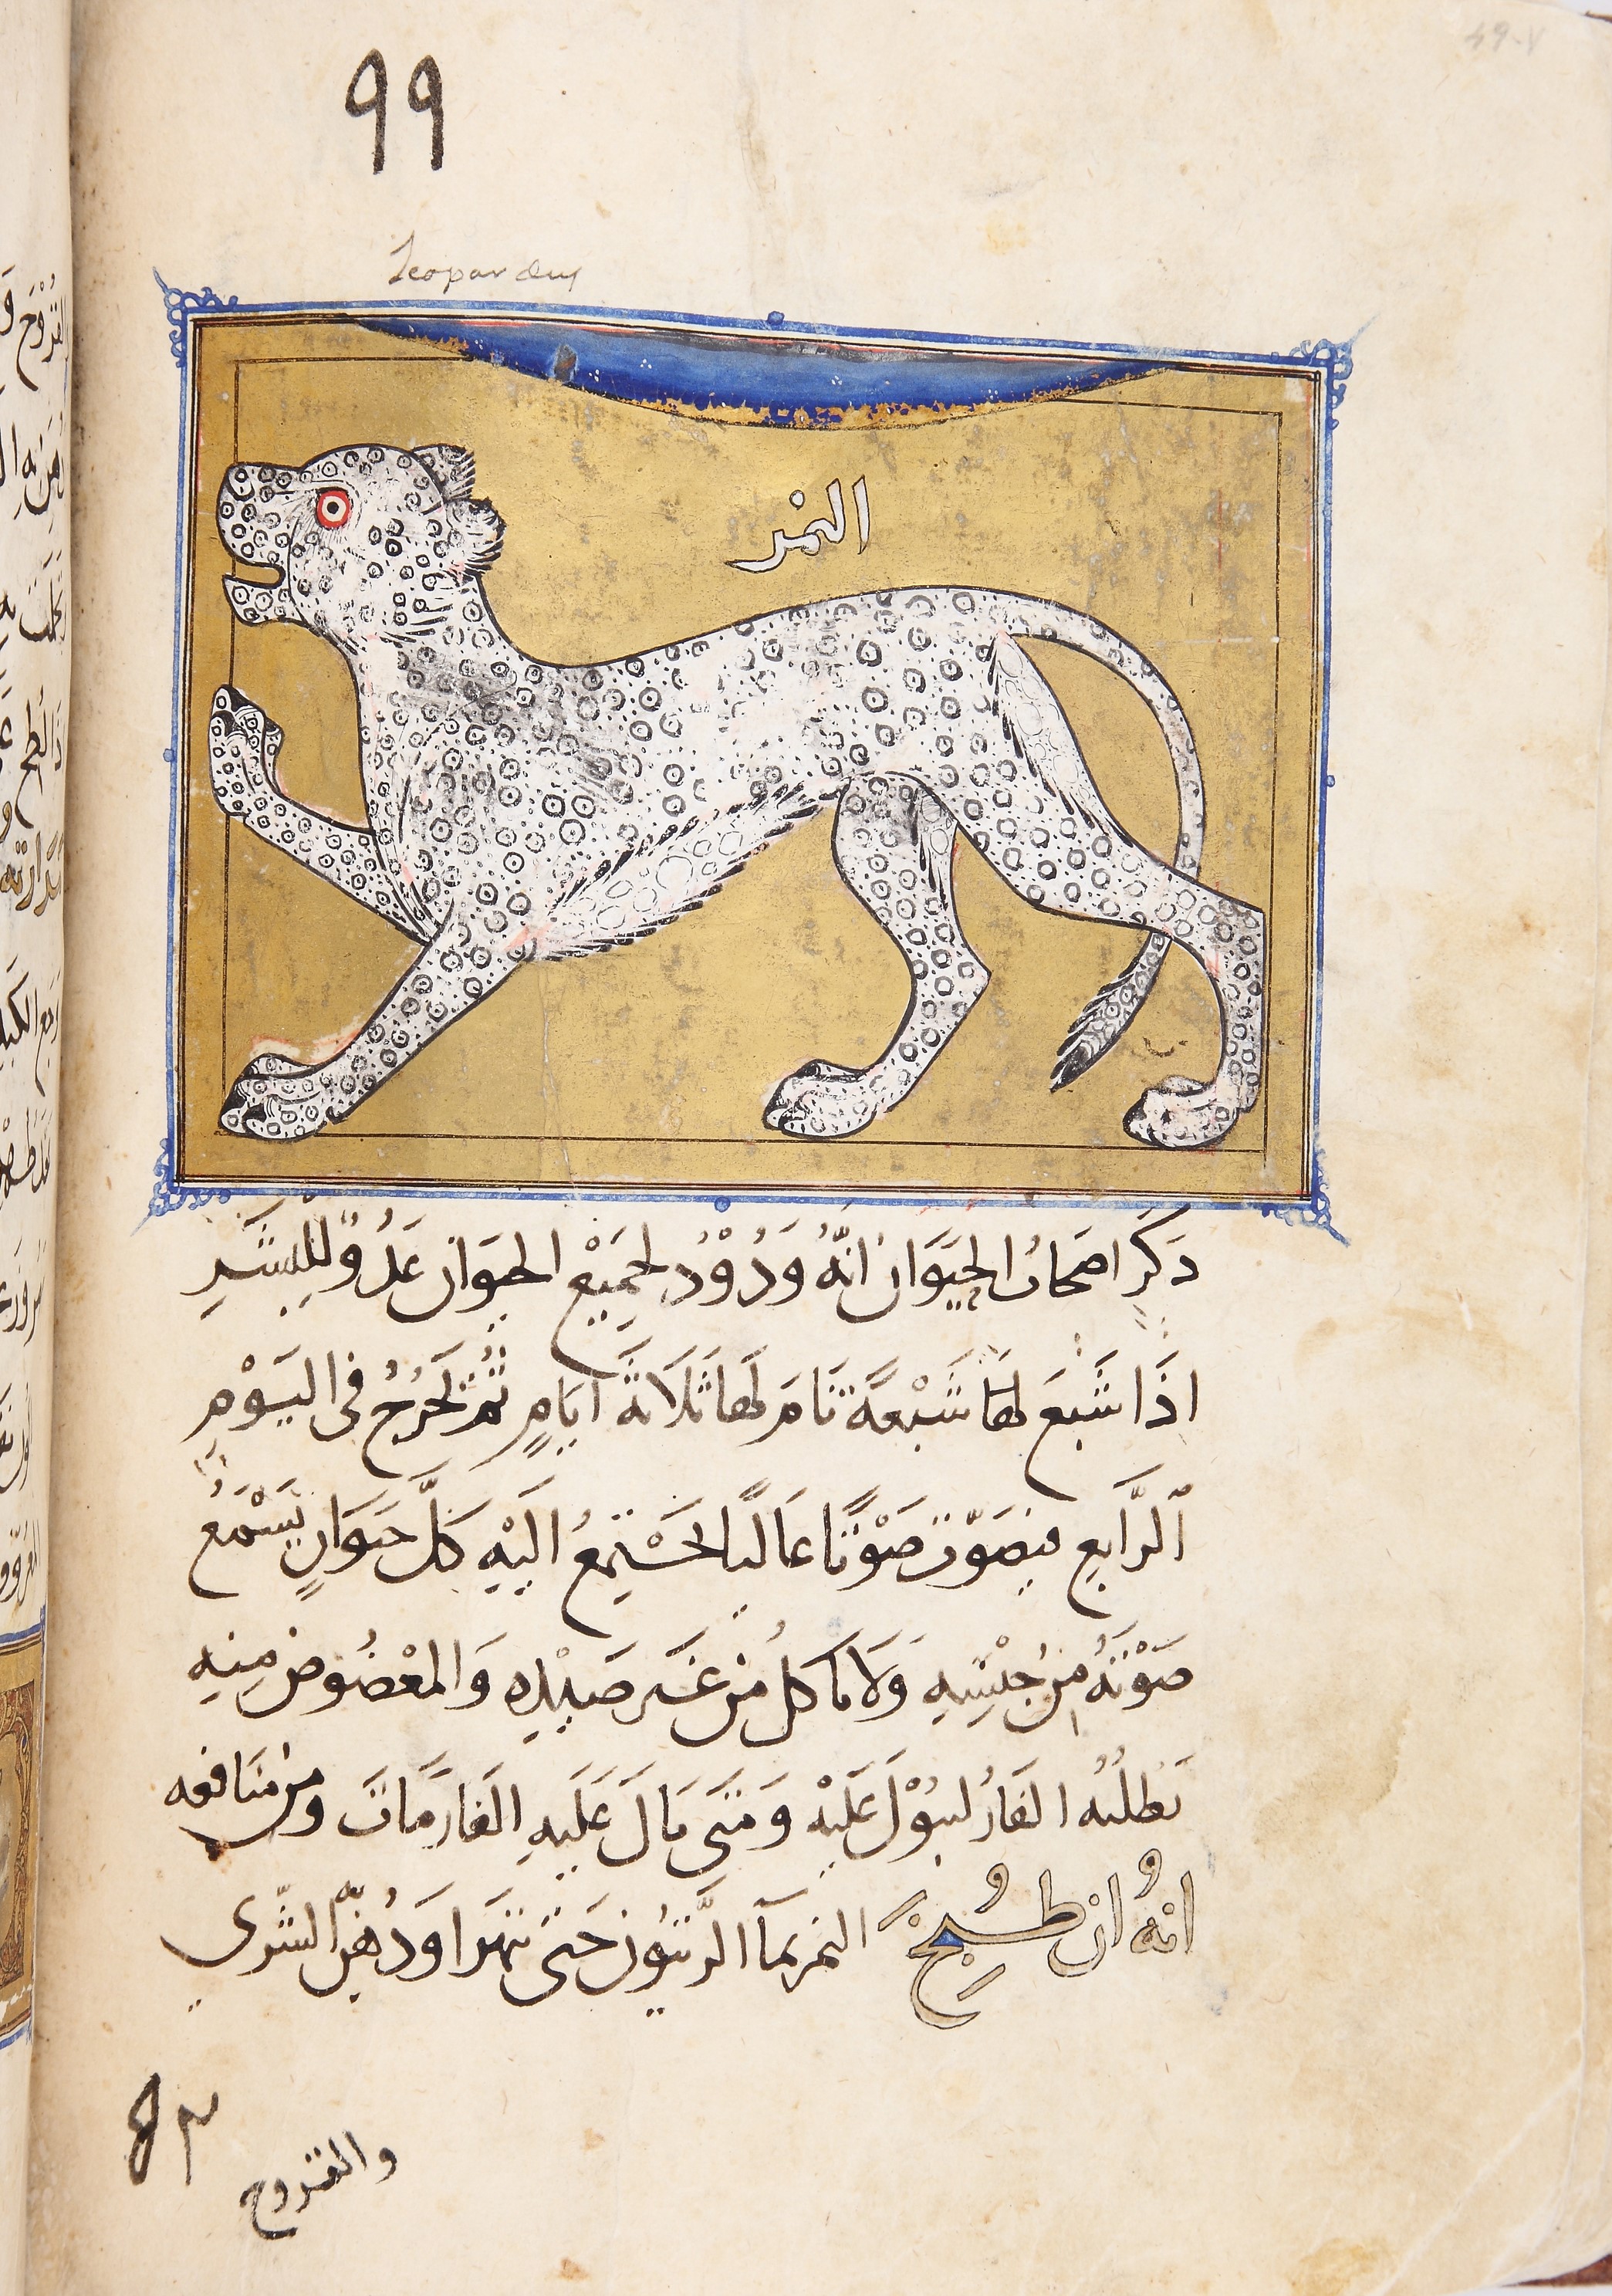 99
Leopardus
النمر
ذَكَرَ اصحَابُ الحيَوَان انّهُ وَدُوْدُ لجَمِيْع الحيَوَان عَدُوٌّ للبَشَرِ
اذَا شَبعَ لهَا شَبْعَةً تنَامَ لهَا ثَلَاثَةَ ايَامٍ ثُمَّ تَخَرُجُ فى اليَوْمِ
الرَّابع فيصَوّت صَوْتًا عَاليًا لتَجْتَمِعُ الَيْهِ كلُّ حيَوَانٍ يَسْمَعُ
صَوْتَهُ مِن جِنْسِهِ وَلَا ياكل مِن غَير صَيْدِهِ وَالمعْضُوض مِنِه
تَطلُبُه الفَارُ لتبُوْلَ عَلَيْه وَمَتَى بَالَ عَلَيهِ الفَار مَاتَ ومن منَافعه
انهُ ان طُبِخَ النمر بمآ الزَّيتُون حَتى تَهَرا وَدُهنَ الشّرى
٨٣
والقروح